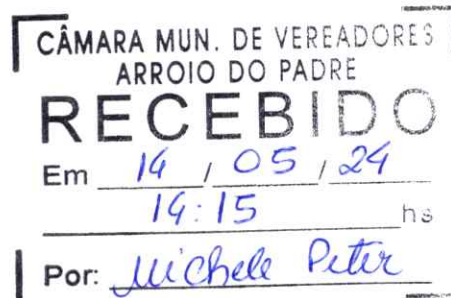 CÂMARA MUN. DE VEREADORES
ARROIO DO PADRE
RECEBIDO
Em 14 / 05 / 24
14:15 hs
Por: Michele Peter